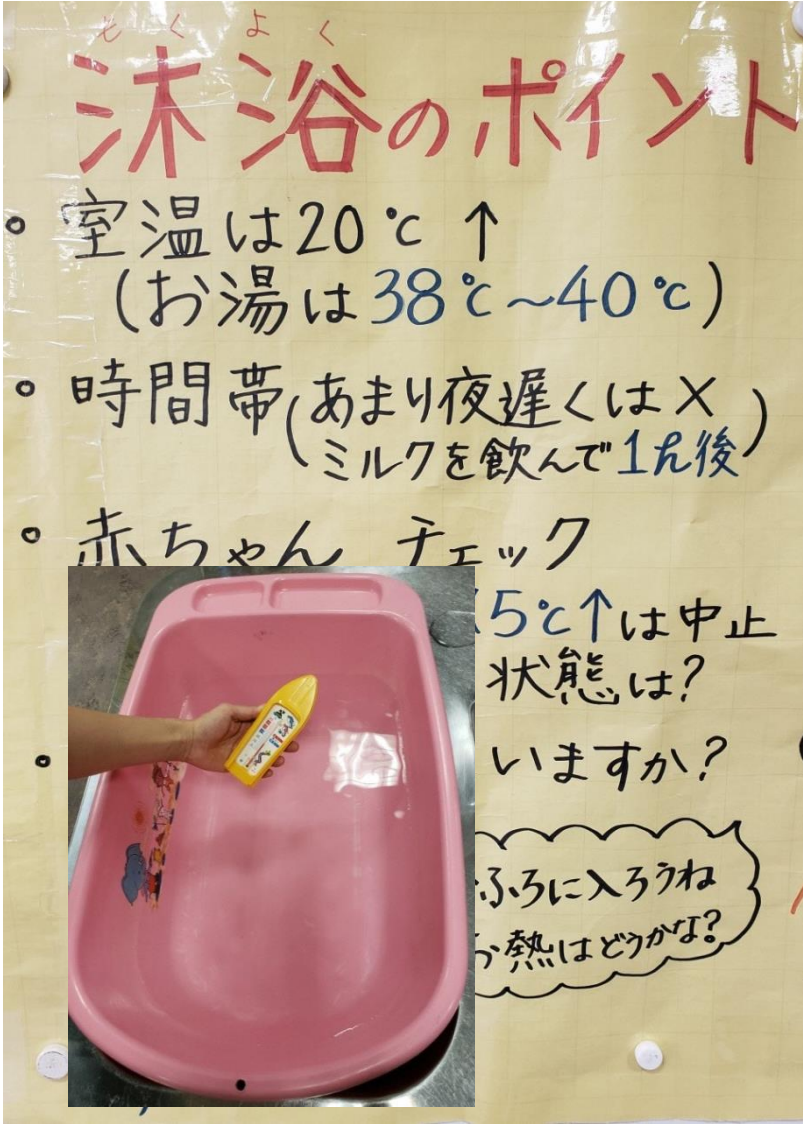 もくよく
沐浴のポイント
• 室温は20℃ ↑
(お湯は38℃～40℃)
• 時間帯(あまり夜遅くは×
ミルクを飲んで1h後)
• 赤ちゃん チェック
5℃↑は中止
状態は?
• いますか?
ふろに入ろうね
熱はどうかな?